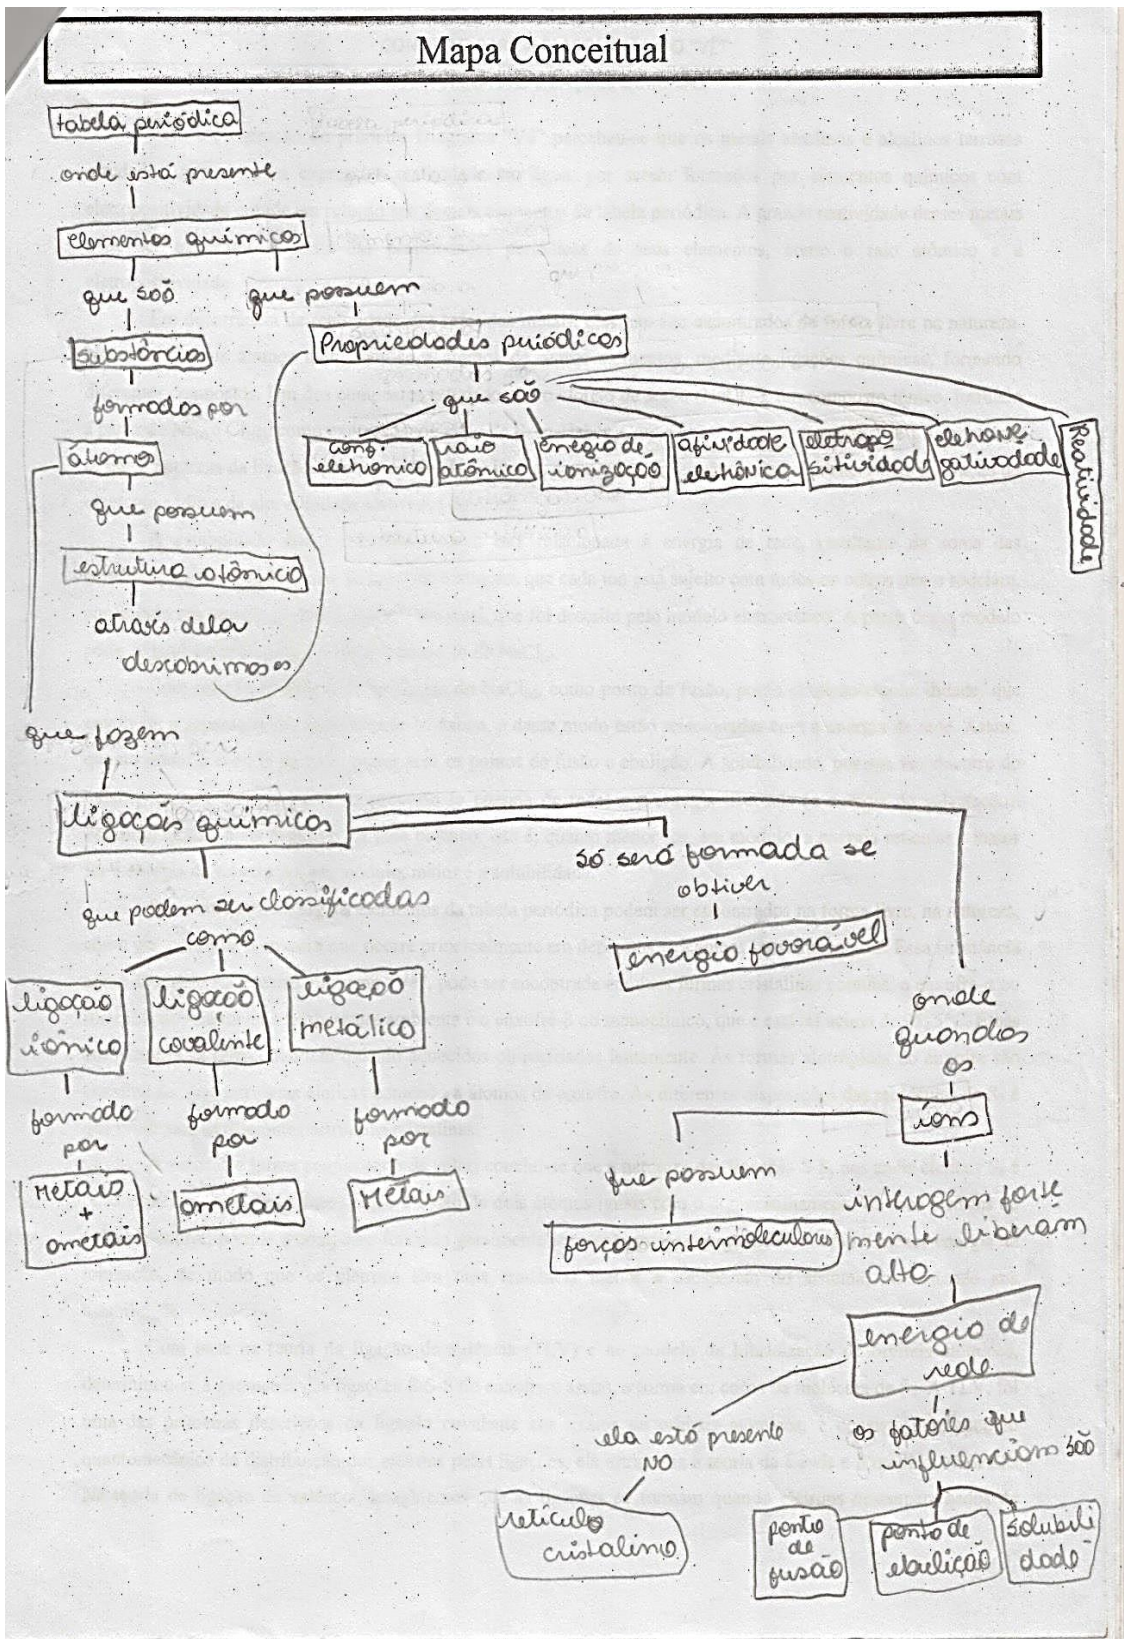 Mapa Conceitual
tabela periódica
onde está presente
elementos químicos
que são
que possuem
substâncias
Propriedades periódicas
formados por
que são
conf.
eletrônica
raio
atômico
energia de
ionização
afinidade
eletrônica
eletropo
sitividade
eletrone
gatividade
Reatividade
átomos
que possuem
estrutura atômica
através dela
descobrimos as
que fazem
ligações químicas
só será formada se
obtiver
energia favorável
que podem ser classificadas
como
ligação
iônica
ligação
covalente
ligação
metálica
onde
quandios
os
íons
formado
por
formado
por
formado
por
Metais
+
ametais
ametais
Metais
que possuem
forças intermoleculares
interagem forte
mente liberam
alta
energia de
rede
ela está presente
NO
os fatores que
influenciam são
retículo
cristalino
ponto
de
fusão
ponto de
ebulição
solubili
dade